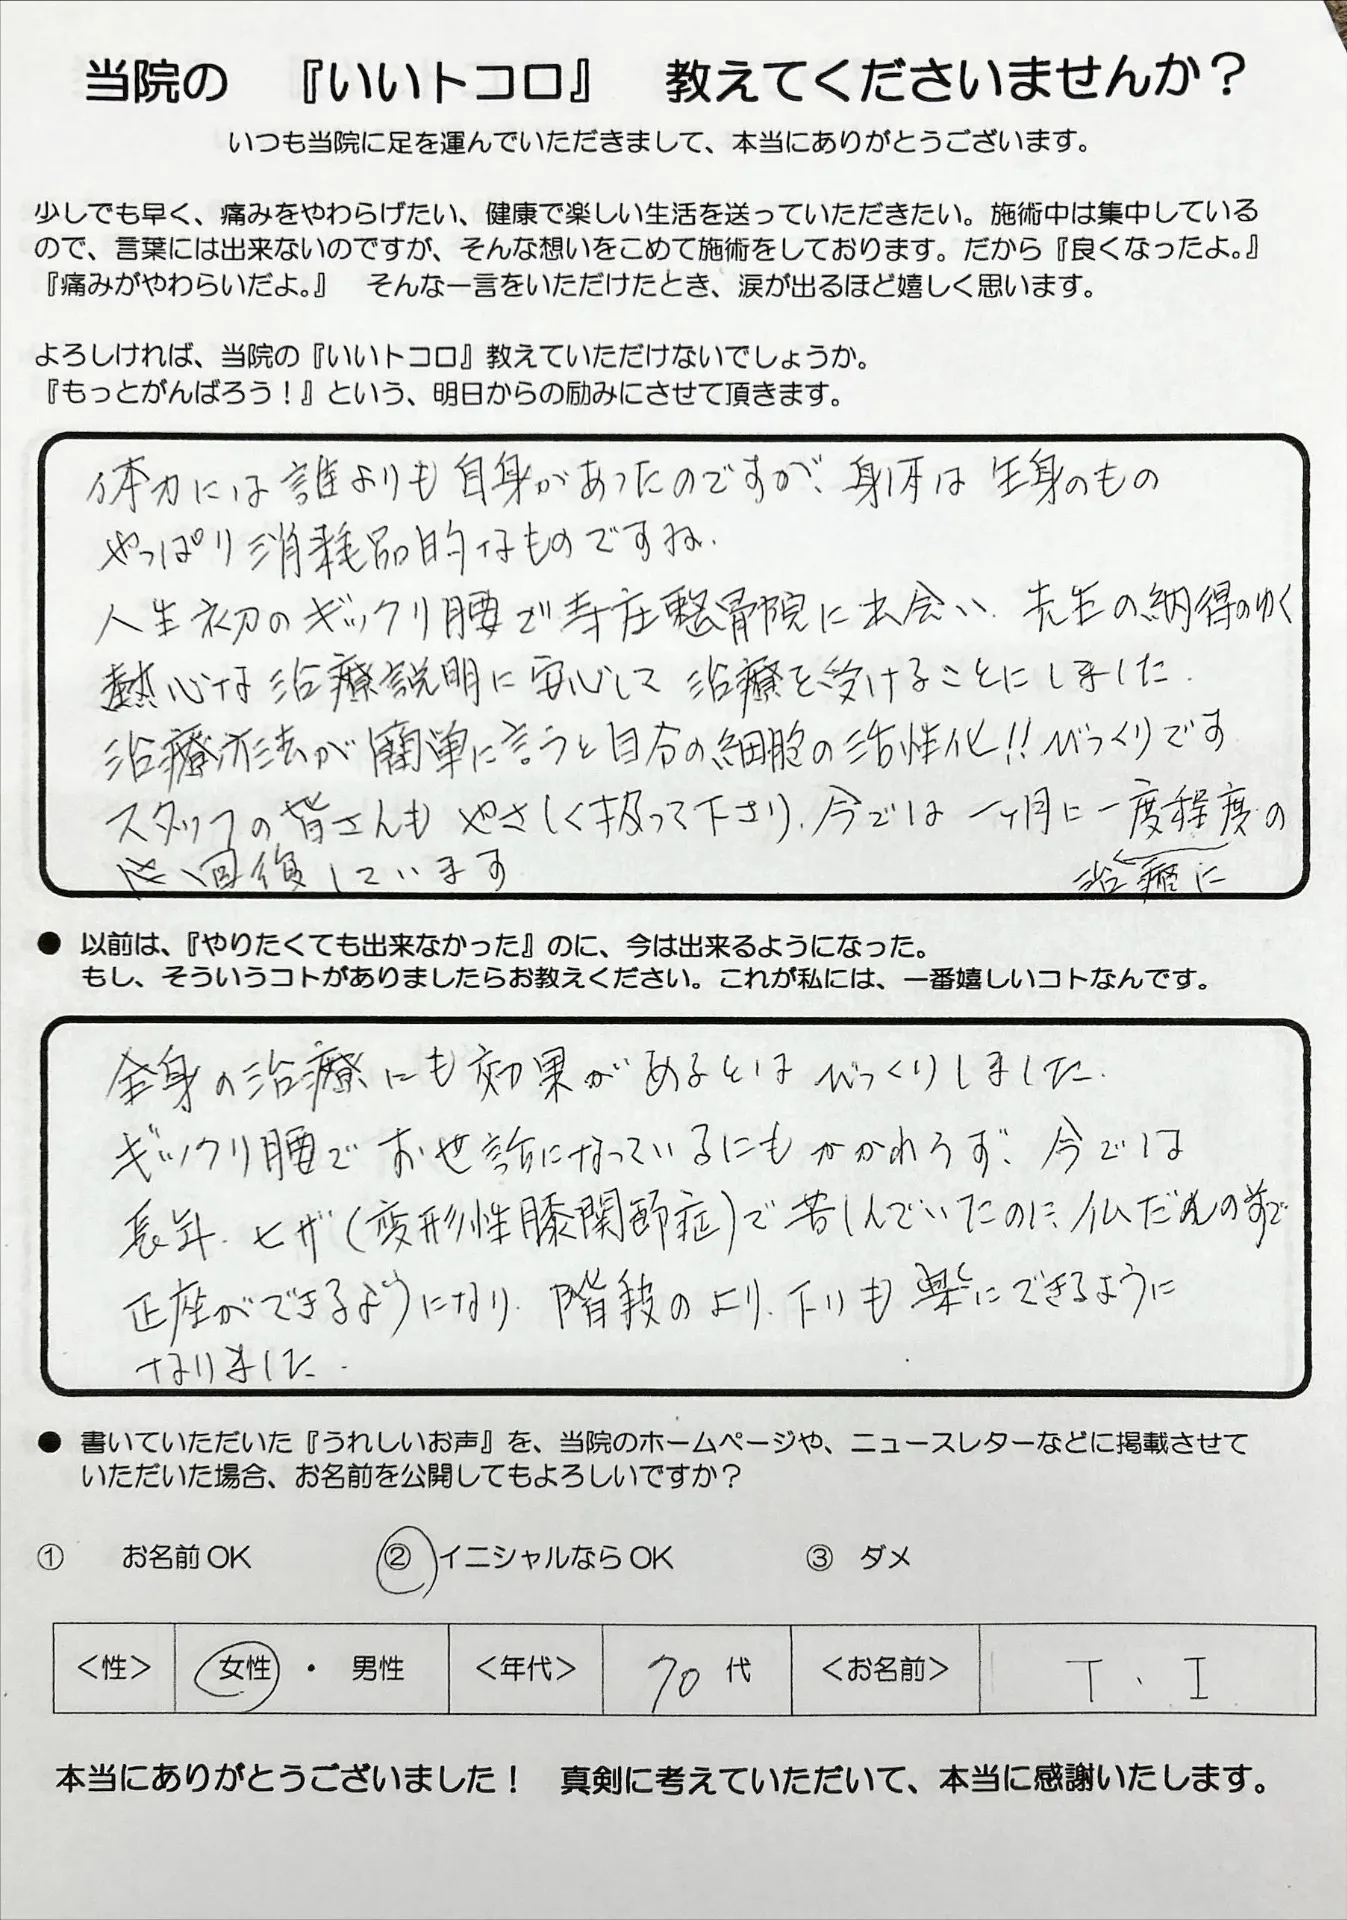 当院の 『いいトコロ』 教えてくださいませんか？
いつも当院に足を運んでいただきまして、本当にありがとうございます。
少しでも早く、痛みをやわらげたい、健康で楽しい生活を送っていただきたい。施術中は集中している
ので、言葉には出来ないのですが、そんな想いをこめて施術をしております。だから『良くなったよ。』
『痛みがやわらいだよ。』 そんな一言をいただけたとき、涙が出るほど嬉しく思います。
よろしければ、当院の『いいトコロ』教えていただけないでしょうか。
『もっとがんばろう！』という、明日からの励みにさせて頂きます。
体力には誰よりも自身があったのですが、身体は生身のもの
やっぱり消耗品的なものですね.
人生初のギックリ腰で寺庄整骨院に出会い. 先生の納得のゆく
熱心な治療説明に安心して治療を受けることにしました.
治療方法が簡単に言うと自分の細胞の活性化!!びっくりです
スタッフの皆さんもやさしく扱って下さり. 今では一ヶ月に一度程度の
治療に
回復しています
● 以前は、『やりたくても出来なかった』のに、今は出来るようになった。
もし、そういうコトがありましたらお教えください。これが私には、一番嬉しいコトなんです。
全身の治療にも効果があるとはびっくりしました.
ギックリ腰でお世話になっているにもかかわらず、今では
長年. ヒザ(変形性膝関節症)で苦しんでいたのに、仏だんの前で
正座ができるようになり. 階段ののより. 下りも楽にできるように
なりました.
● 書いていただいた『うれしいお声』を、当院のホームページや、ニュースレターなどに掲載させて
いただいた場合、お名前を公開してもよろしいですか？
① お名前OK ② イニシャルならOK ③ ダメ
＜性＞ 女性 ・ 男性 ＜年代＞ 70 代 ＜お名前＞ T . I
本当にありがとうございました！ 真剣に考えていただいて、本当に感謝いたします。